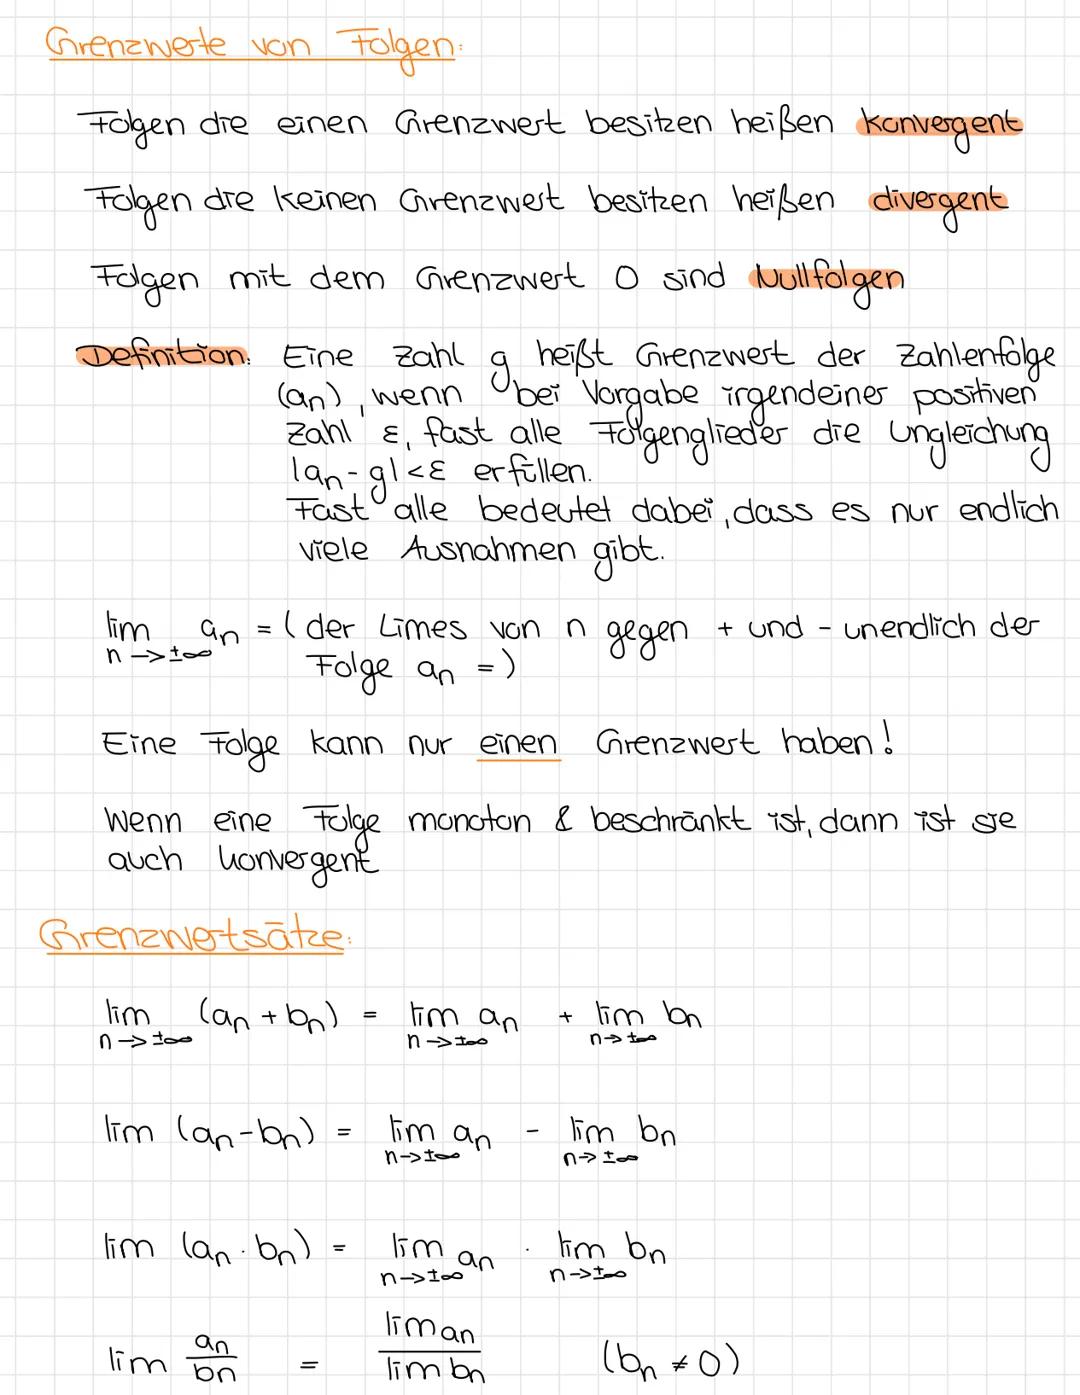 Grenzwerte von Folgen:
Folgen die einen Grenzwert besitzen heißen konvergent
Folgen die keinen Grenzwert besitzen heißen divergent
Folgen mit dem Grenzwert 0 sind Nullfolgen
Definition: Eine Zahl g heißt Grenzwert der Zahlenfolge
(an), wenn bei Vorgabe irgendeiner positiven
Zahl ε, fast alle Folgenglieder die Ungleichung
|an - g| < ε erfüllen.
Fast alle bedeutet dabei, dass es nur endlich
viele Ausnahmen gibt.
lim an = ( der Limes von n gegen + und - unendlich der
n -> ±∞ Folge an = )
Eine Folge kann nur einen Grenzwert haben!
Wenn eine Folge monoton & beschränkt ist, dann ist sie
auch konvergent
Grenzwertsätze:
lim (an + bn) = lim an + lim bn
n -> ±∞ n -> ±∞ n -> ±∞
lim (an - bn) = lim an - lim bn
n -> ±∞ n -> ±∞
lim (an · bn) = lim an · lim bn
n -> ±∞ n -> ±∞
lim an/bn = lim an/lim bn (bn ≠ 0)